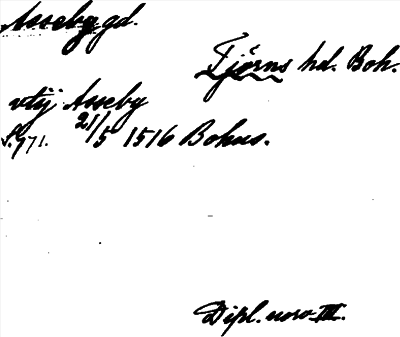 Asseby gd.
Tjörns hd. Boh.
vtij Asseby
s. 971. 21/5 1516 Bohus.
Dipl. norv. III.